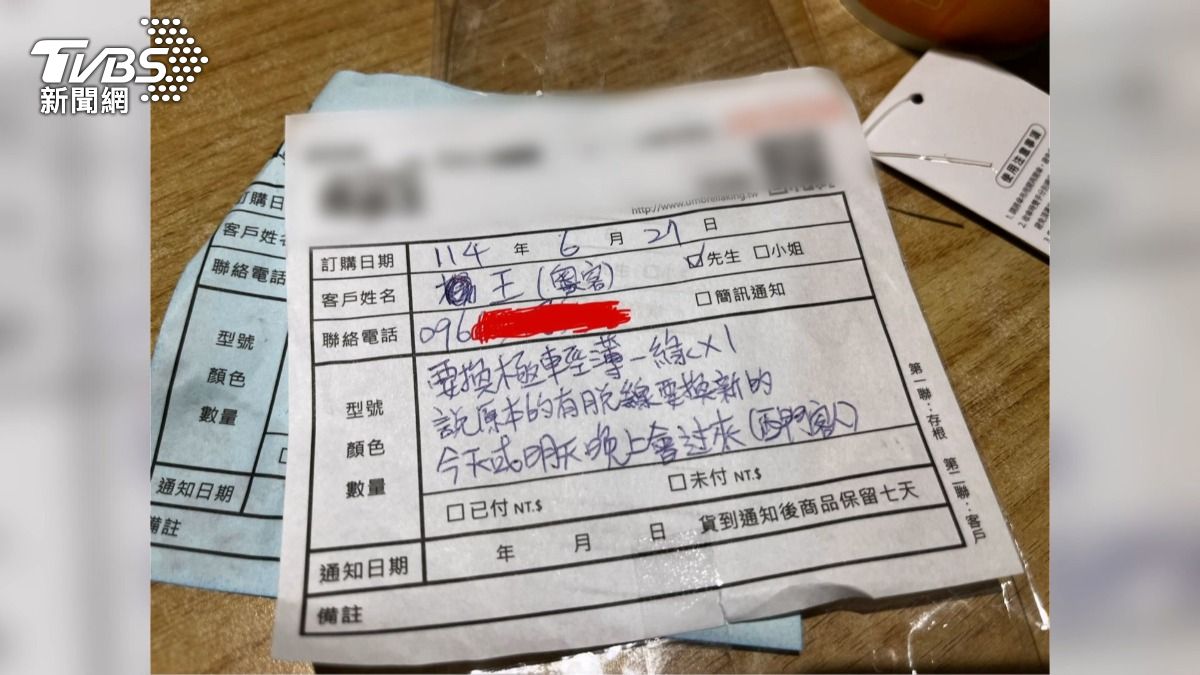 TVBS
新聞網
使用注意事項
http://www.umbrellaking.tw
訂購日期 114 年 6 月 27 日
客戶姓名 王(奧客) ☑先生 □小姐
聯絡電話 096 □簡訊通知
型號 顏色 數量
要換極輕薄-綠x1
說原本的有脫線要換新的
今天或明天晚上會過來(西門
□已付 NT.$ □未付 NT.$
通知日期 年 月 日 貨到通知後商品保留七天
備註
第一聯:存根 第二聯:客戶
訂購日
客戶姓名
聯絡電話
型號
顏色
數量
通知日期
備註